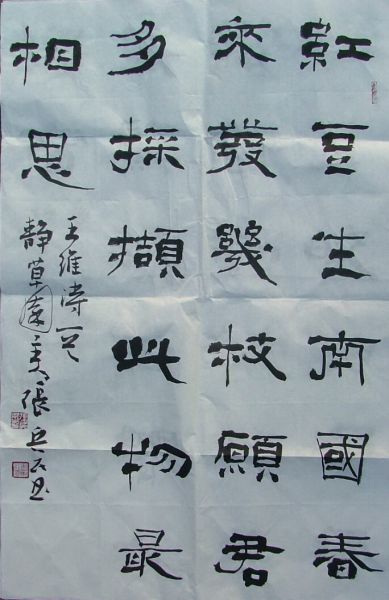 紅豆生南國春
來發幾枝願君
多採擷此物最
相思
王維詩一首
靜草齋主張兵